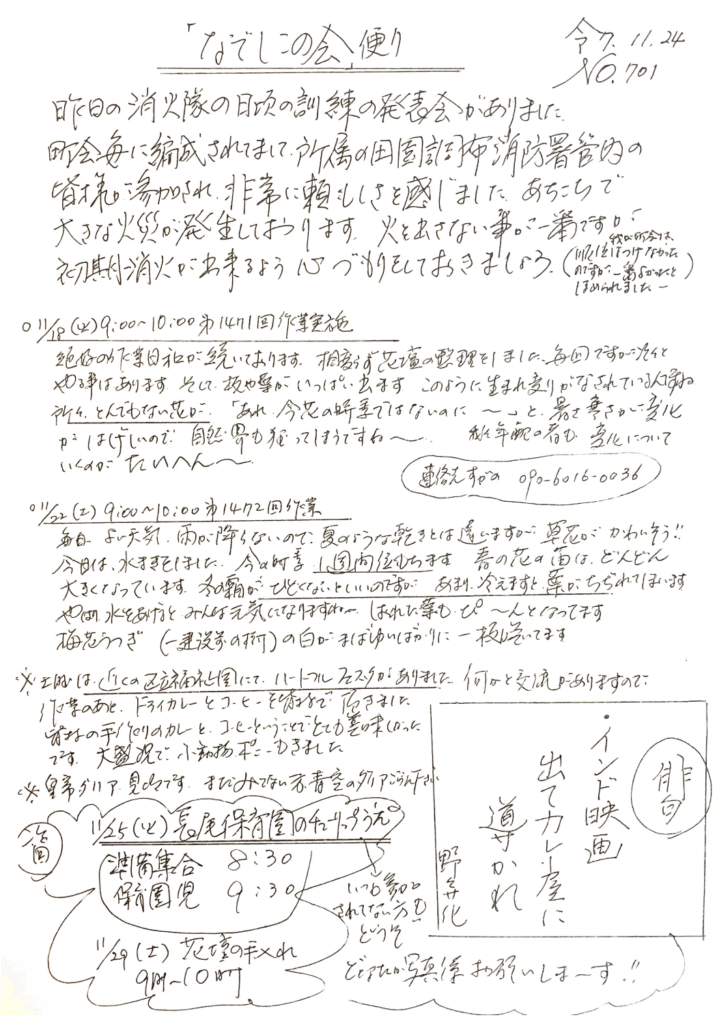 「なでしこの会」便り
令7.11.24
NO.701
昨日の消火隊の日頃の訓練の発表会がありました
町会毎に編成されてまして、所属の田園調布消防署管内の
皆様が参加され、非常に頼もしさを感じました あちこちで
大きな火災が発生しております。火を出さない事が一番ですが
初期消火が出来るよう心づもりをしておきましょう。
(我が町会は、
順位はつけなかった
のですが一番よかったと
ほめられました―
○11/18(火)9:00〜10:00第1471回作業実施
絶好の作業日和が続いております。相変らず花壇の整理をしました。毎回ですが次々と
やる事はあります そして、枝や葉がいっぱい出ます このように生まれ変りがなされているんですね
所々、とんでもない花が、「あれ、今花の時季ではないのに 〜」と、暑さ寒さが変化
がはげしいので 自然界も狂ってしまうですね〜 私年配の者も 変化について
いくのが たいへん〜
連絡 すがの 090-6016-0036
○11/22(土)9:00〜10:00第1472回作業
毎日 よい天気、雨が降らないので、夏のような乾きとは違いますが 草花が かわいそう!!
今日は、水まきをしました 今の時季 1週間位もちます 春の花の苗は、どんどん
大きくなっています。冬の霜が ひどくないといいのですが あまり冷えますと、葉がちぢれてしまいます
やはり水をあげると みんな元気になりますね〜 しおれた葉も ぴ〜んとなってます
梅花うつぎ (建設前の桁)の白がまばゆいばかりに一枝咲いてます
※土曜は、近くの区立福祉園にて、ハートフル フェスタがありました 何かと交流がありますので
作業のあと、ドライカレーとコーヒーを皆なで 頂きました
皆なの手作りのカレーと、コーヒーということでとても美味しかった
です。大盛況で、小動物 ポニーもきました
※皇帝ダリア 見ごろです。まだみてない方 青空のダリアごらん下さい
俳句
・インド映画
出てカレー屋に
道すかれ
野の花
次回
11/25(火)長尾保育園のチューリップうえ
準備集合 8:30
保育園児 9:30
いつも参加
されてない方も
どうぞ
11/29(土)花壇の手入れ
9時〜10時
どなたか写真係お願いしま〜す!!